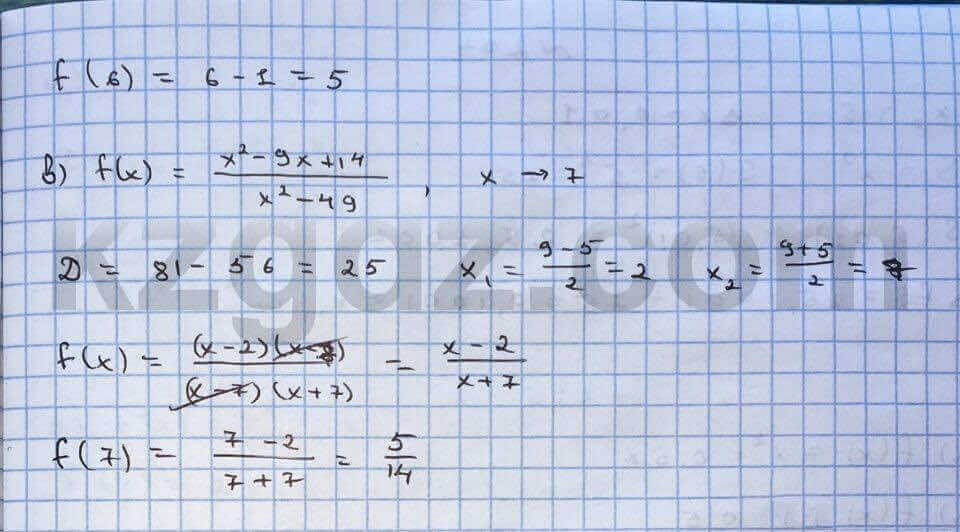 f(6) = 6 - 1 = 5
в) f(x) = (x² - 9x + 14)/(x² - 49), x → 7
kzgaz.com
D = 81 - 56 = 25 x₁ = (9 - 5)/2 = 2 x₂ = (9 + 5)/2 = 7
f(x) = ((x - 2)(x - 7))/((x - 7)(x + 7)) = (x - 2)/(x + 7)
f(7) = (7 - 2)/(7 + 7) = 5/14